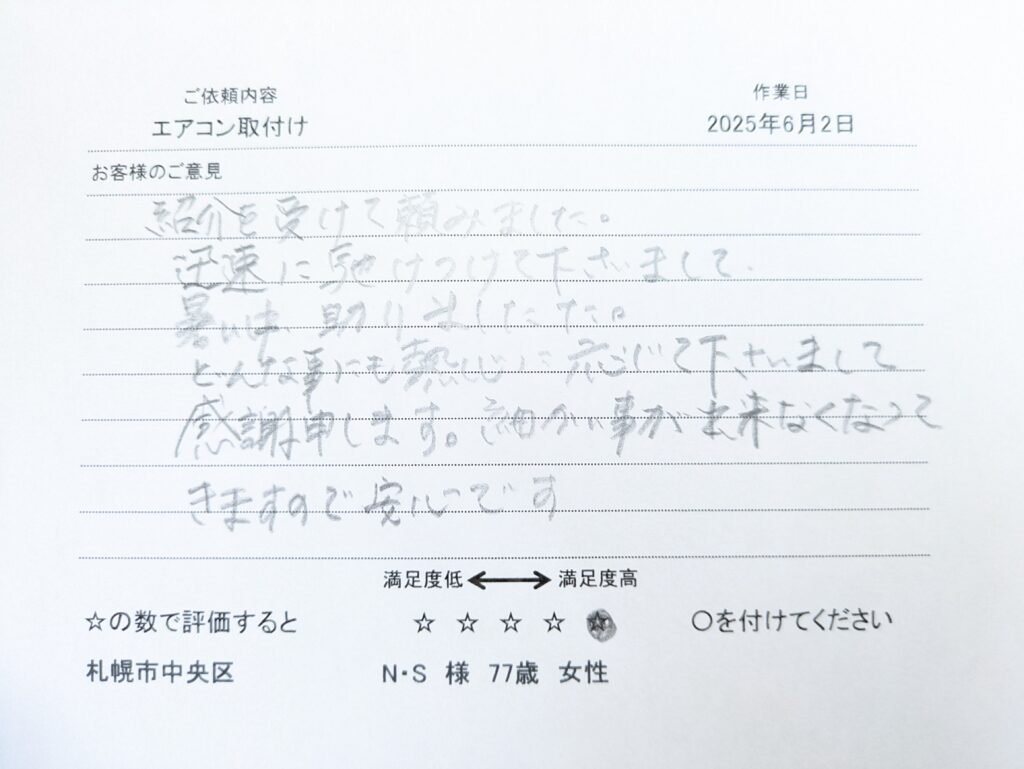 ご依頼内容
作業日
エアコン取付け
2025年6月2日
お客様のご意見
紹介を受けて頼みました。
迅速に馳けつけて下さいまして
助りましたた。
どんな事にも熱心に応じて下さいまして
感謝申します。細かい事が出来なくなって
きますので安心です
満足度低 ⟷ 満足度高
☆の数で評価すると ☆ ☆ ☆ ☆ ☆ ○を付けてください
札幌市中央区 N・S 様 77歳 女性